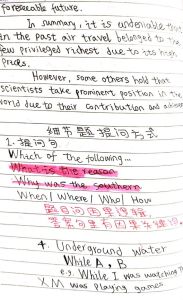 foreseeable future.
In summary, it is undeniable that
in the past air travel belonged to the
few privileged richest due to its high
prices.
However, some others hold that
scientists take prominent position in the
world due to their contribution and
细节题提问方式
1. 提问句
Which of the following...
What is the reason
Why was the southern
When / Where / Who / How
题目问因果逻辑
答案句里有因果
4. Underground Water
While A, B
e.g. While I was watching
XM was playing games